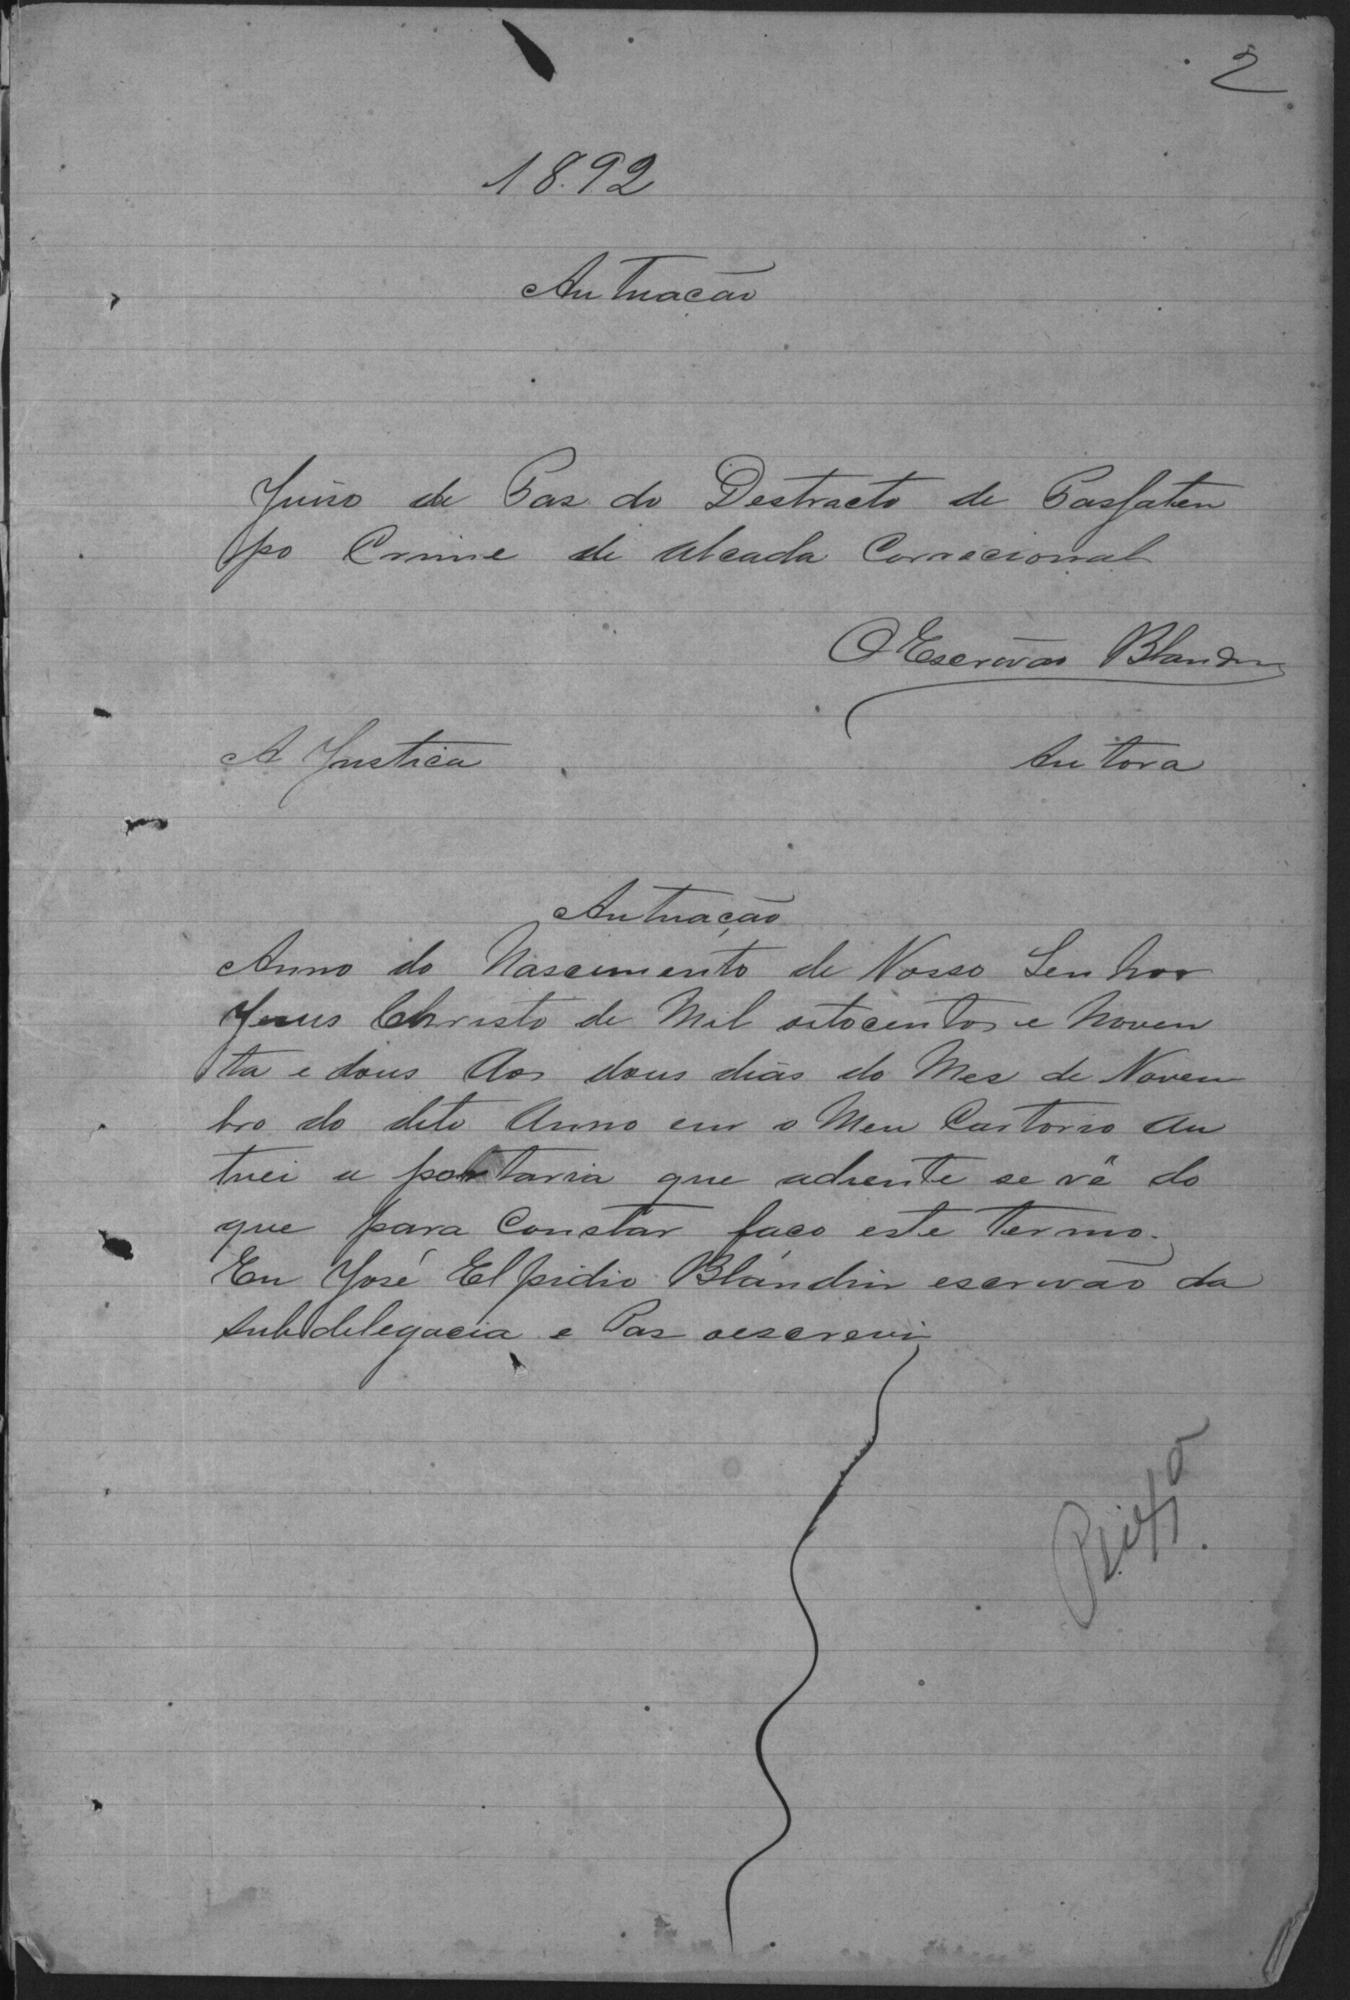 2
1892
Autuação
Juiso de Pas do Destracto de Pasfaten
po Crime de alcada Correcional
O Escrivão Blandin
A Justica
Autora
Autuação
Anno do Nascimento de Nosso Senhor
Jesus Christo de Mil oitocentos e Noven
ta e dous Aos dous dias do Mes de Novem
bro do dito Anno em o Meu Cartorio au
tuei a portaria que adiente se vê do
que para Constar faço este termo.
Eu José Elpidio Blandin escrivão da
Subdelegacia e Pas oescrevi